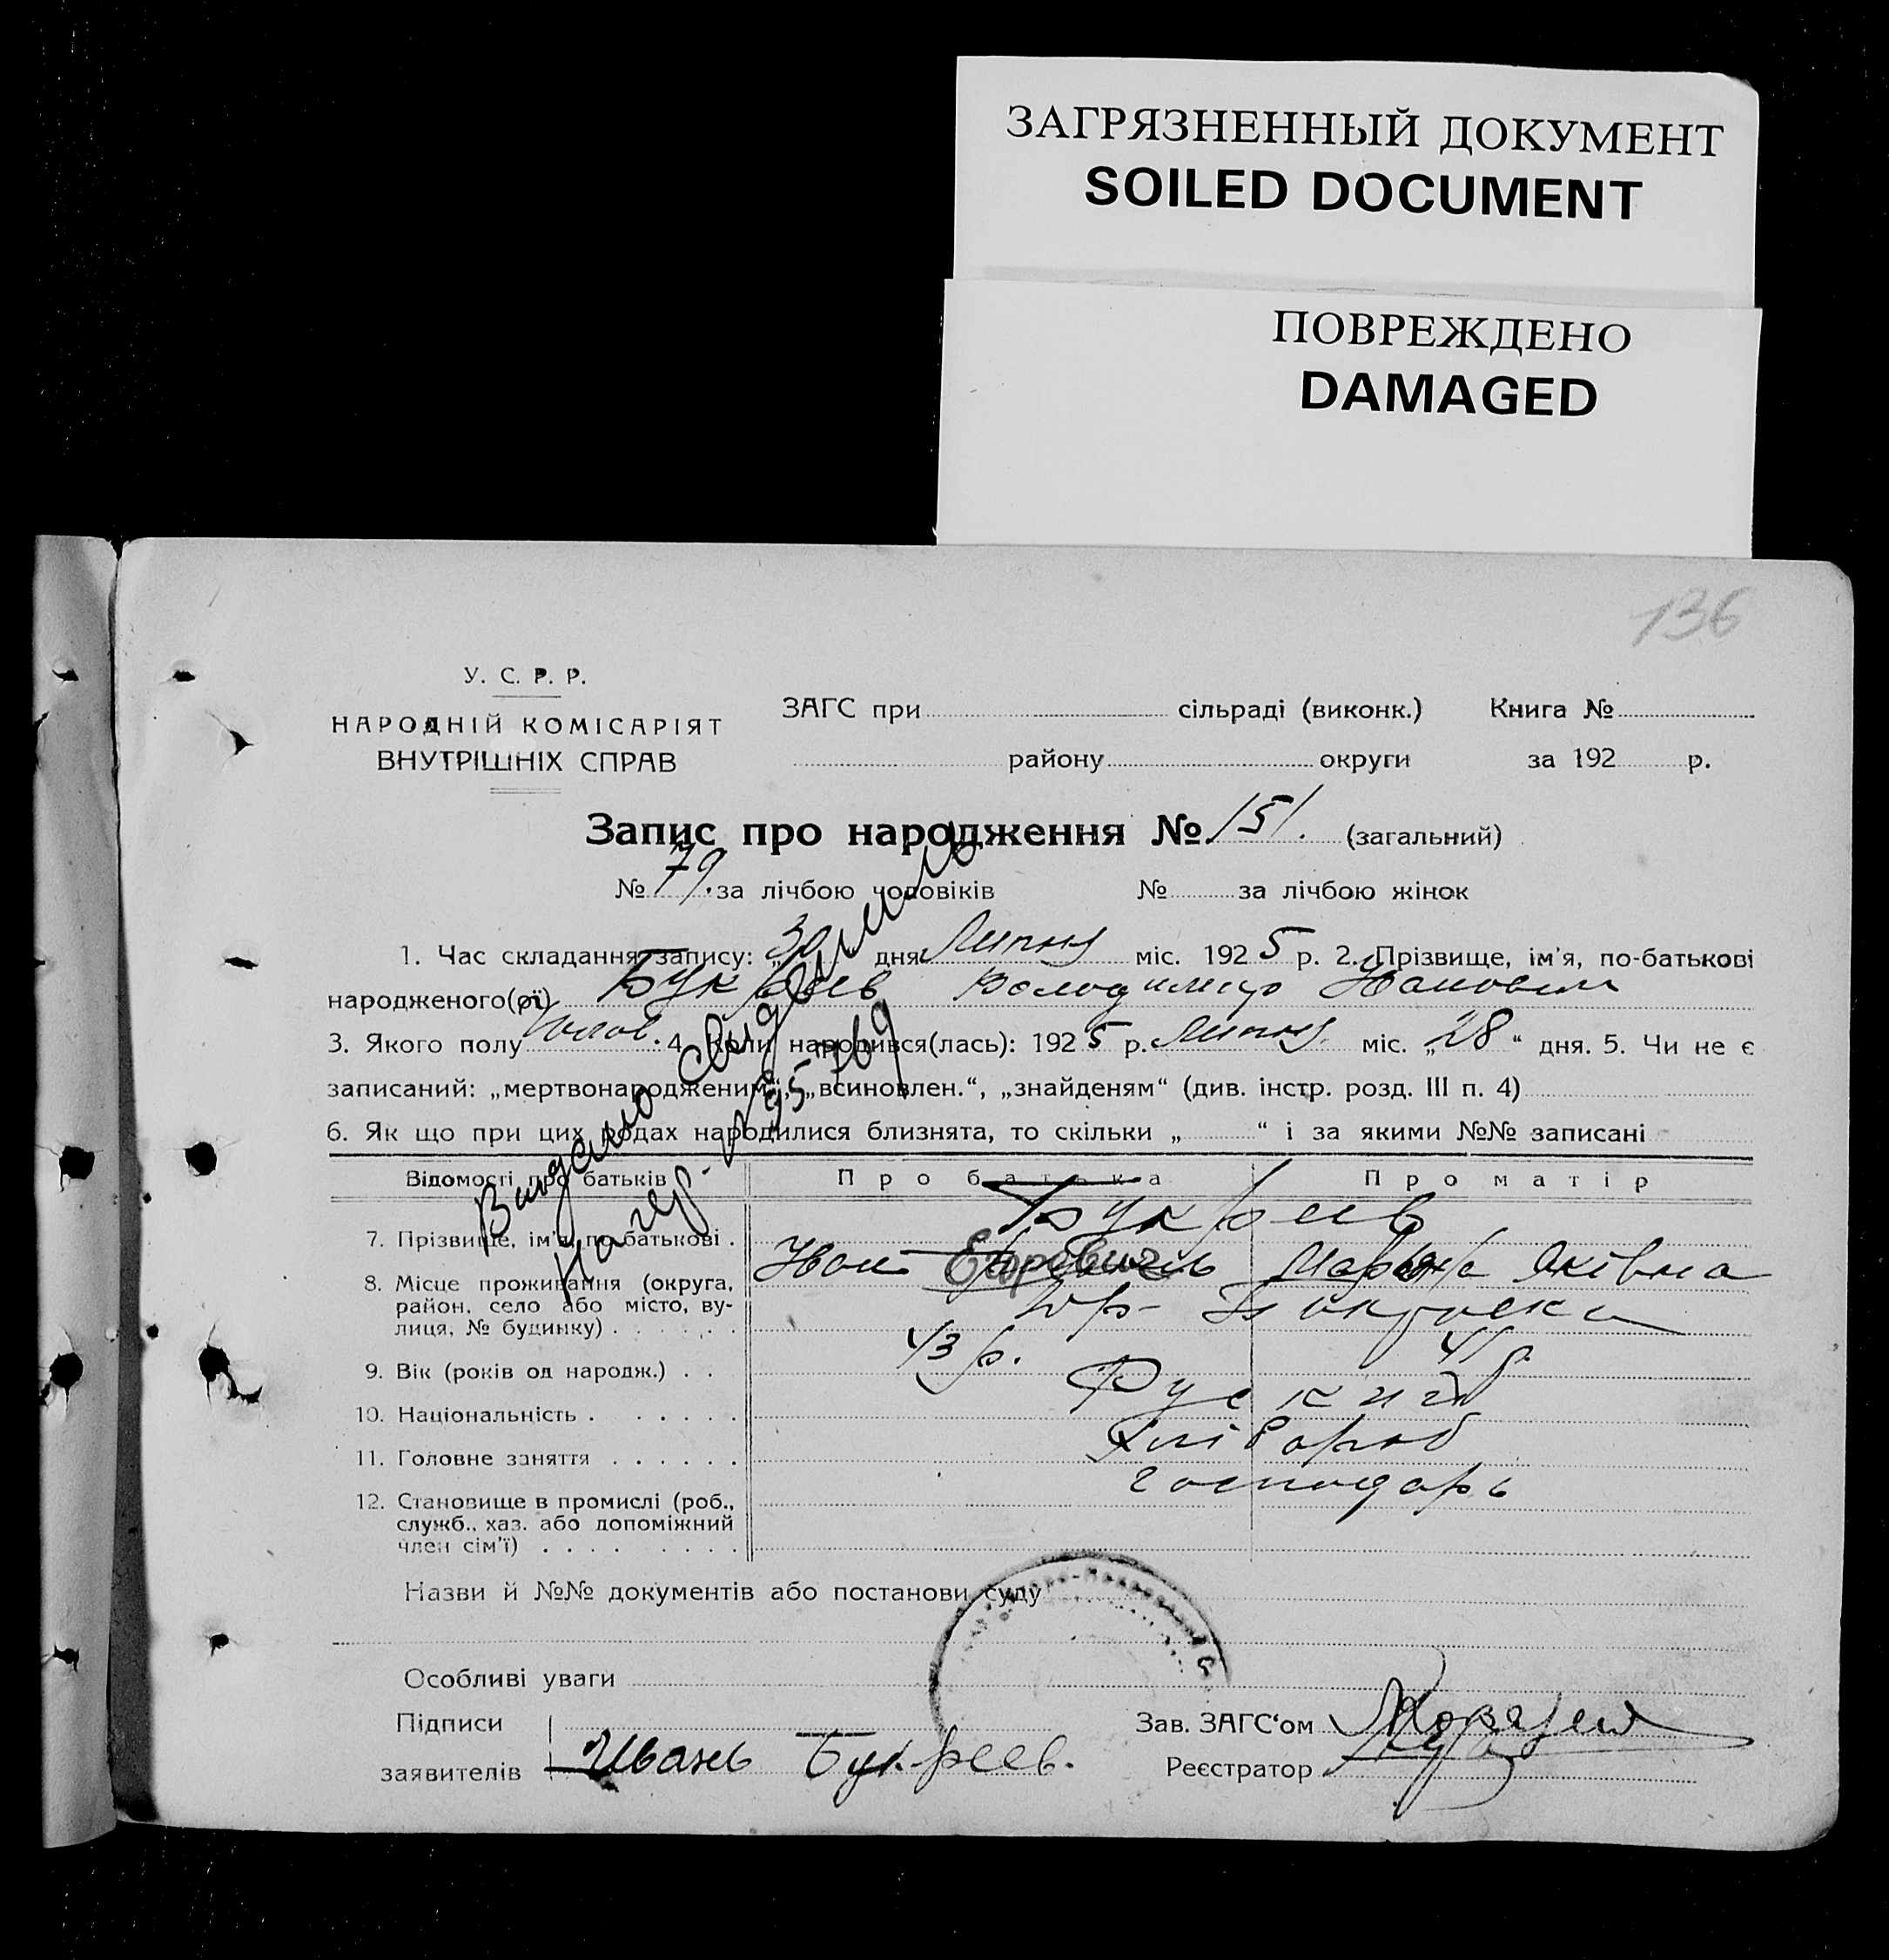 ЗАГРЯЗНЕННЫЙ ДОКУМЕНТ
SOILED DOCUMENT
ПОВРЕЖДЕНО
DAMAGED
136
У. С. Р. Р.
НАРОДНІЙ КОМІСАРІЯТ
ВНУТРІШНІХ СПРАВ
ЗАГС при сільраді (виконк.) Книга №
району округи за 192 р.
Запис про народження № 151. (загальний)
№ 79. за лічбою чоловіків № за лічбою жінок
1. Час складання запису: „30 дня Липня міс. 1925 р. 2. Прізвище, ім'я, по-батькові
народженого(ої) Букреев Володимир Іванович
3. Якого полу чолов. 4. Коли народився(лась): 1925 р. Липня міс. „28“ дня. 5. Чи не є
записаний: „мертвонародженим“, „всиновлен.“, „знайденям“ (див. інстр. розд. III п. 4)
6. Як що при цих родах народилися близнята, то скільки „ “ і за якими №№ записані
Видано свидетель
Відомості про батьків Про батька Про матір
Букреев
7. Прізвище, ім'я, по батькові .
Иван Егорович Марина Яківна
8. Місце проживання (округа,
район, село або місто, ву-
лиця, № будинку) . . . . . .
9. Вік (років од народж.) . . 43 р. 41 р.
10. Національність . . . . . . Руский
11. Головне заняття . . . . . . Хлібороб
12. Становище в промислі (роб., господарь
служб., хаз. або допоміжний
член сім'ї) . . . . . . . .
Назви й №№ документів або постанови суду
Особливі уваги
Підписи
заявителів Иванъ Букреев.
Зав. ЗАГС‘ом
Реєстратор